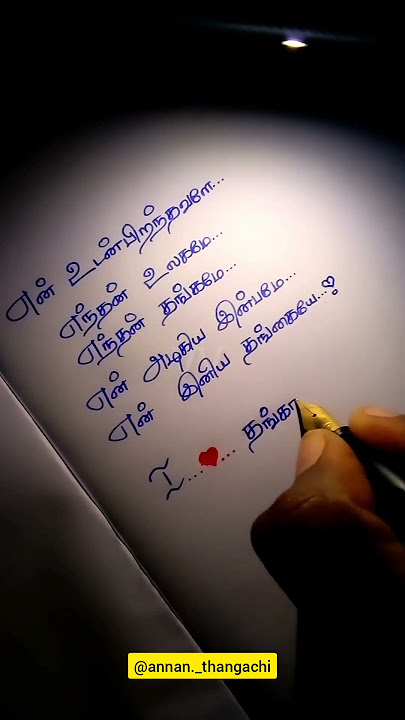 என் உடன்பிறந்தவளே...
எந்தன் உலகமே...
எந்தன் தங்கமே...
என் அழகிய இன்பமே...
என் இனிய தங்கையே...♡
I...❤... தங்கா
@annan._thangachi